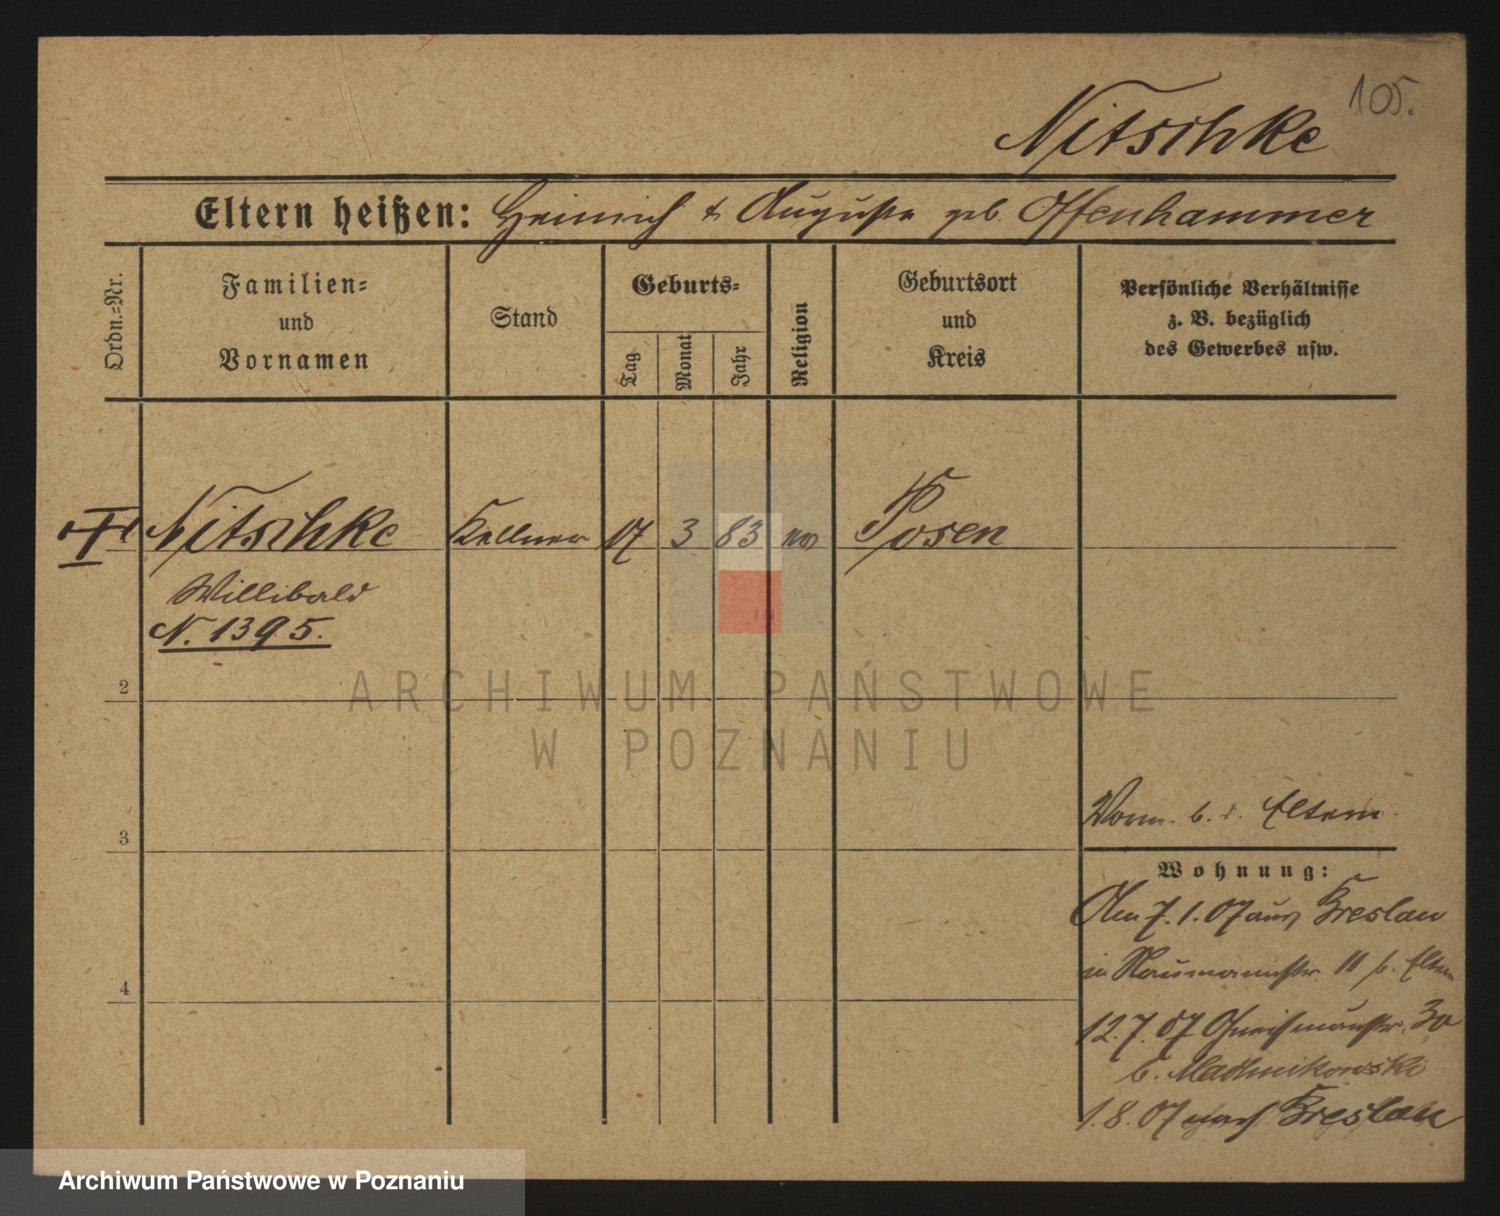 105.
Nitschke
Eltern heißen: Heinrich & Auguste geb. Offenhammer
Ordn.-Nr.
Familien-
und
Vornamen
Stand
Geburts-
Tag
Monat
Jahr
Religion
Geburtsort
und
Kreis
Persönliche Verhältnisse
z. B. bezüglich
des Gewerbes usw.
Nitschke Kellner 17 3 83 Posen
Willibald
N. 1395.
2
ARCHIWUM PAŃSTWOWE
W POZNANIU
3
b. d. Eltern.
Wohnung:
Am 7.1.07 aus Breslau
in Naumannstr. 11 b. Eltern
12.7.07 30
b.
1.8.07 nach Breslau
4
Archiwum Państwowe w Poznaniu